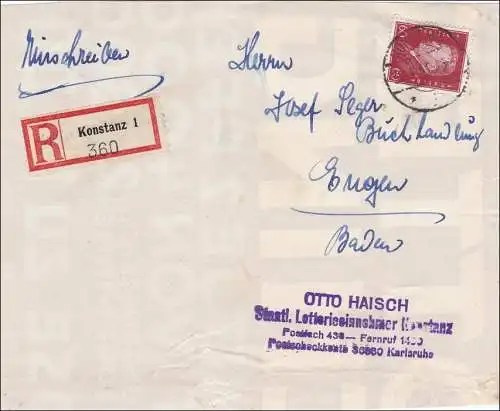 Einschreiben
Herrn
Josef Seger
Buchhandlung
Engen
Baden
R
Konstanz 1
360
60
OTTO HAISCH
Staatl. Lotterieeinnehmer Konstanz
Postfach 436 — Fernruf
Postscheckkonto Karlsruhe